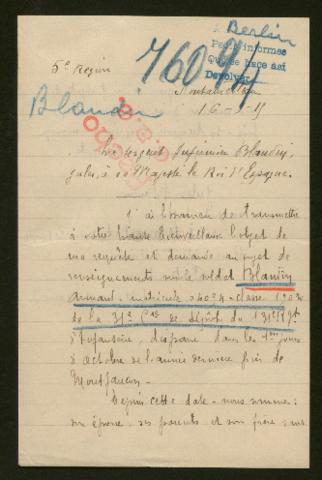 Berlin
Pedir informes
Que se hace así
Devolver
5e Region
76094
Fontainebleau
16-5-15
Blandin
Hecho
Le sergent infirmier Blandin,
à sa Majesté le Roi d'Espagne.
J'ai l'honneur de transmettre
à votre haute bienveillance l'objet de
ma requête et demande au sujet de
renseignements sur le soldat Blandin
Armand, matricule classe
de la 31e Cie de dépôt du 131e Régt
d'Infanterie, disparu dans les 1ers jours
d'Octobre de l'année dernière près de
Montfaucon.
Depuis cette date nous sommes:
son épouse, ses parents et son frère sans